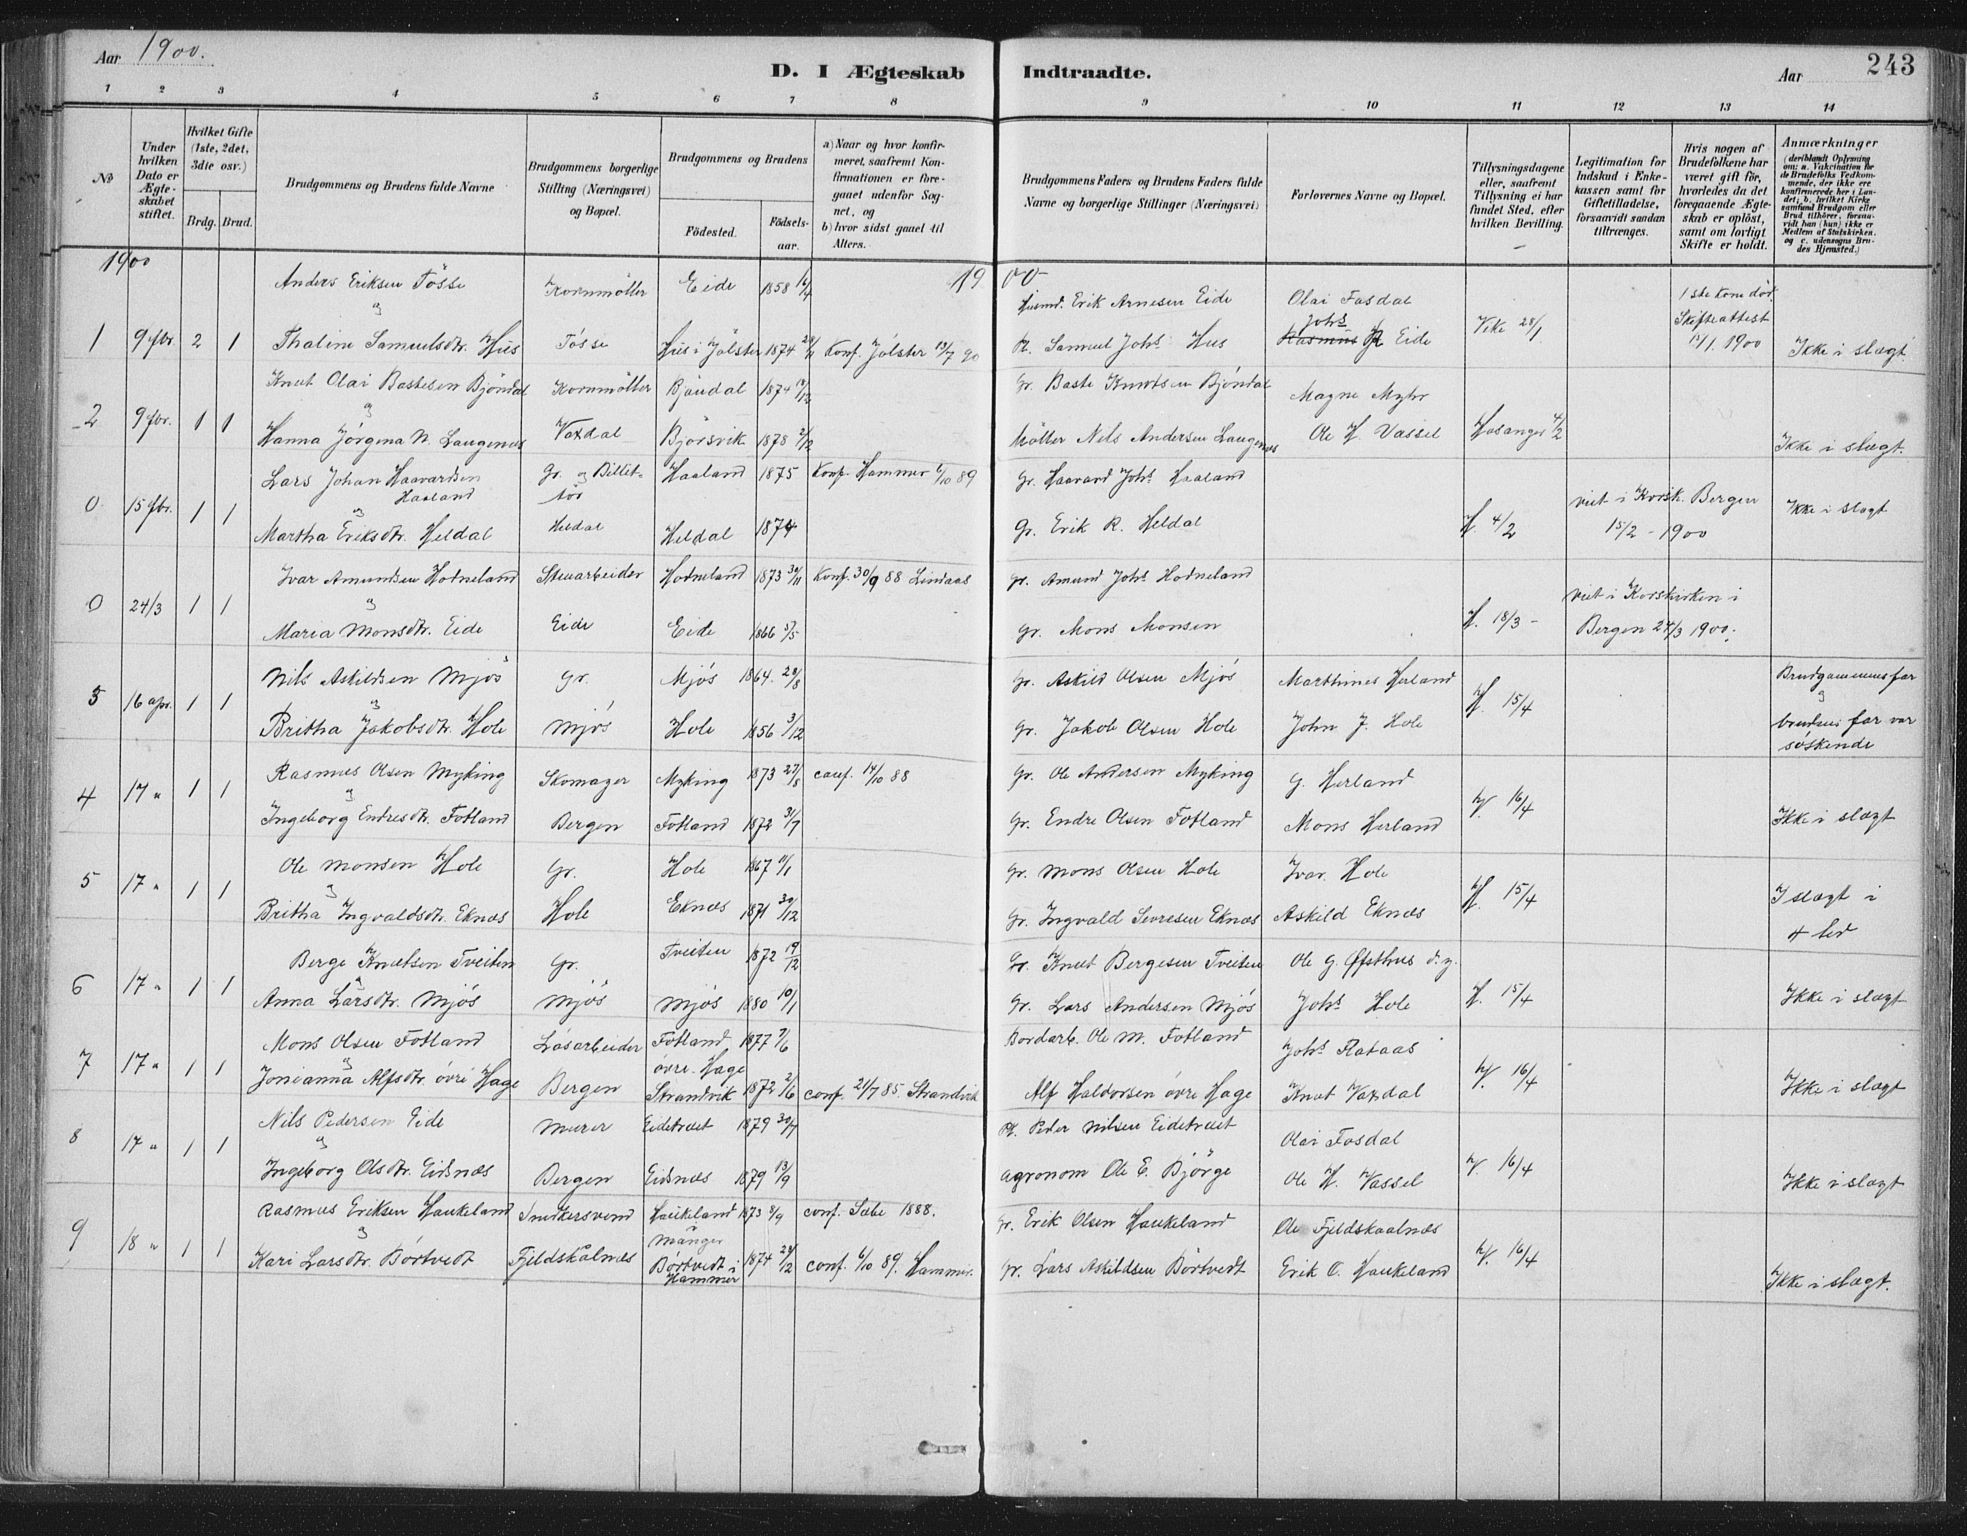 Aar 1900.
D. I Ægteskab Indtraadte.
Aar
243
1 2 3 4 5 6 7 8 9 10 11 12 13 14
No
Under hvilken Dato er Ægteskabet stiftet.
Hvilket Gifte (1ste, 2det, 3die osv.)
Brdg. Brud.
Brudgommens og Brudens fulde Navne
Brudgommens borgerlige Stilling (Næringsvei) og Bopæl.
Brudgommens og Brudens
Fødested.
Fødselsaar.
a) Naar og hvor konfirmeret, saafremt Konfirmationen er foregaaet udenfor Sognet, og
b) hvor sidst gaaet til Alters.
Brudgommens Faders og Brudens Faders fulde Navne og borgerlige Stillinger (Næringsvei)
Forlovernes Navne og Bopæl.
Tillysningsdagene eller, saafremt Tillysning ei har fundet Sted, efter hvilken Bevilling.
Legitimation for Indskud i Enkekassen samt for Giftetilladelse, forsaavidt saadan tiltrænges.
Hvis nogen af Brudefolkene har været gift før, hvorledes da det foregaaende Ægteskab er opløst, samt om lovligt Skifte er holdt.
Anmærkninger
(deriblandt Oplysning om: a. Vakcination for de Brudefolks Vedkommende, der ikke ere konfirmerede her i Landet; b. hvilket Kirkesamfund Brudgom eller Brud tilhører, forsaavidt han (hun) ikke er Medlem af Statskirken, og c. udensogns Brudes Hjemsted.)
1900 1900
Anders Eriksen Tösse Kornmöller Eide 1858 16/4 Husmd. Erik Arnesen Eide Olai Fosdal 1ste kone död
&
1 9 fbr. 2 1 Thaline Samuelsdtr. Hus Tösse Hus i Jölster 1874 Konf. Jölster 13/7 90 Pl. Samuel Johs Hus Rasmus Johs Eide Veke 28/1 Skifteattest 1900 Ikke i slægt
Knut Olai Bastesen Bjöndal Kornmöller Bjöndal 1874 Gr. Baste Knutsen Bjöndal Magne Myhr
&
2 9 fbr. 1 1 Hanna Jörgina N. Laugenæs Vaxdal Björsvik 1878 2/12 Möller Nils Andersen Laugenæs Ole H. Vassel Hosanger 4/2 Ikke i slægt.
Lars Johan Haavardsen Haaland Gr. & Billettör Haaland 1875 Konf. Hammer 6/10 89 Gr. Haavard Johs Haaland viet i Korsk. Bergen
&
0 15 fbr. 1 1 Martha Eriksdtr. Heldal Heldal Heldal 1874 Gr. Erik R. Heldal H. 4/2 15/2 - 1900 Ikke i slægt
Ivar Amundsen Hodneland Stenarbeider Hodneland 1873 30/11 Konf. 30/9 88 Lindaas Gr. Amund Johs Hodneland viet i Korskirken i
&
0 24/3 1 1 Maria Monsdtr. Eide Eide Eide 1866 5/5 Gr. Mons Monsen H. 18/3 - Bergen 24/3 1900.
Nils Askildsen Mjös Gr. Mjös 1864 28/8 Gr. Askild Olsen Mjös Marthines Herland Brudgommens far
&
3 16 apr. 1 1 Britha Jakobsdtr. Hole Mjös Hole 1856 3/12 Gr. Jakob Olsen Hole John J. Hole H. 15/4 & brudens far var söskende
Rasmus Olsen Myking Skomager Myking 1873 27/8 conf. 14/10 88 Gr. Ole Andersen Myking G. Herland
&
4 17 " 1 1 Ingeborg Endresdtr. Fotland Bergen Fotland 1872 31/7 Gr. Endre Olsen Fotland Mons Herland V. 16/4 Ikke i slægt
Ole Monsen Hole Gr. Hole 1867 11/1 Gr. Mons Olsen Hole Ivar Hole
&
5 17 " 1 1 Britha Ingvaldsdtr. Eknæs Hole Eknæs 1871 30/12 Gr. Ingvald Sevresen Eknæs Askild Eknæs H. 15/4 I slægt i 4 led
Berge Knutsen Tveiten Gr. Tveiten 1872 19/12 Gr. Knut Bergesen Tveiten Ole G. Øfsthus d.y.
&
6 17 " 1 1 Anna Larsdtr. Mjös Mjös Mjös 1880 10/1 Gr. Lars Andersen Mjös Johs Hole H. 15/4 Ikke i slægt
Mons Olsen Fotland Lösarbeider Fotland 1877 7/6 Bordarb. Ole M. Fotland Johs Flataas
&
7 17 " 1 1 Jonianna Alfsdtr. övre Hage Bergen övre Hage Strandvik 1872 2/6 conf. 21/7 85. Strandvik Alf Haldorsen övre Hage Knut Vaxdal V. 16/4 Ikke i slægt
Nils Pedersen Eide Murer Eidetræet 1879 30/7 Pl. Peder Nilsen Eidetræet Olai Fosdal
&
8 17 " 1 1 Ingeborg Olsdtr. Eidsnæs Bergen Eidsnæs 1879 13/9 agronom Ole E. Bjørge Ole H. Vassel V. 16/4 Ikke i slægt
Rasmus Eriksen Haukeland Snedkersvend Haukeland Manger 1873 8/9 conf. Sæbe 1888. Gr. Erik Olsen Haukeland Ole Fjeldskaalnæs
&
9 18 " 1 1 Kari Larsdtr. Börtvedt Fjeldskålnæs Börtvedt i Hammer 1874 28/2 conf. 6/10 89. Hammer. Gr. Lars Askildsen Börtvedt Erik O. Haukeland V. 16/4 Ikke i slægt.